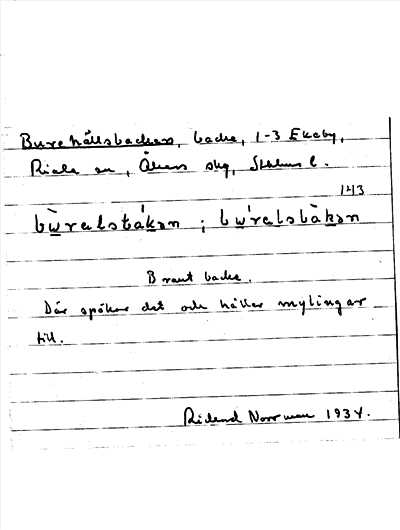 Burehällsbacken, backe, 1-3 Ekeby,
Riala sn, Åkers skg, Sthlms l.
143
bẁrəlstákən ; bẃrəlsbàkən
Brant backe.
Där spökar det och håller mylingar
till.
Rickard Norrman 1934.